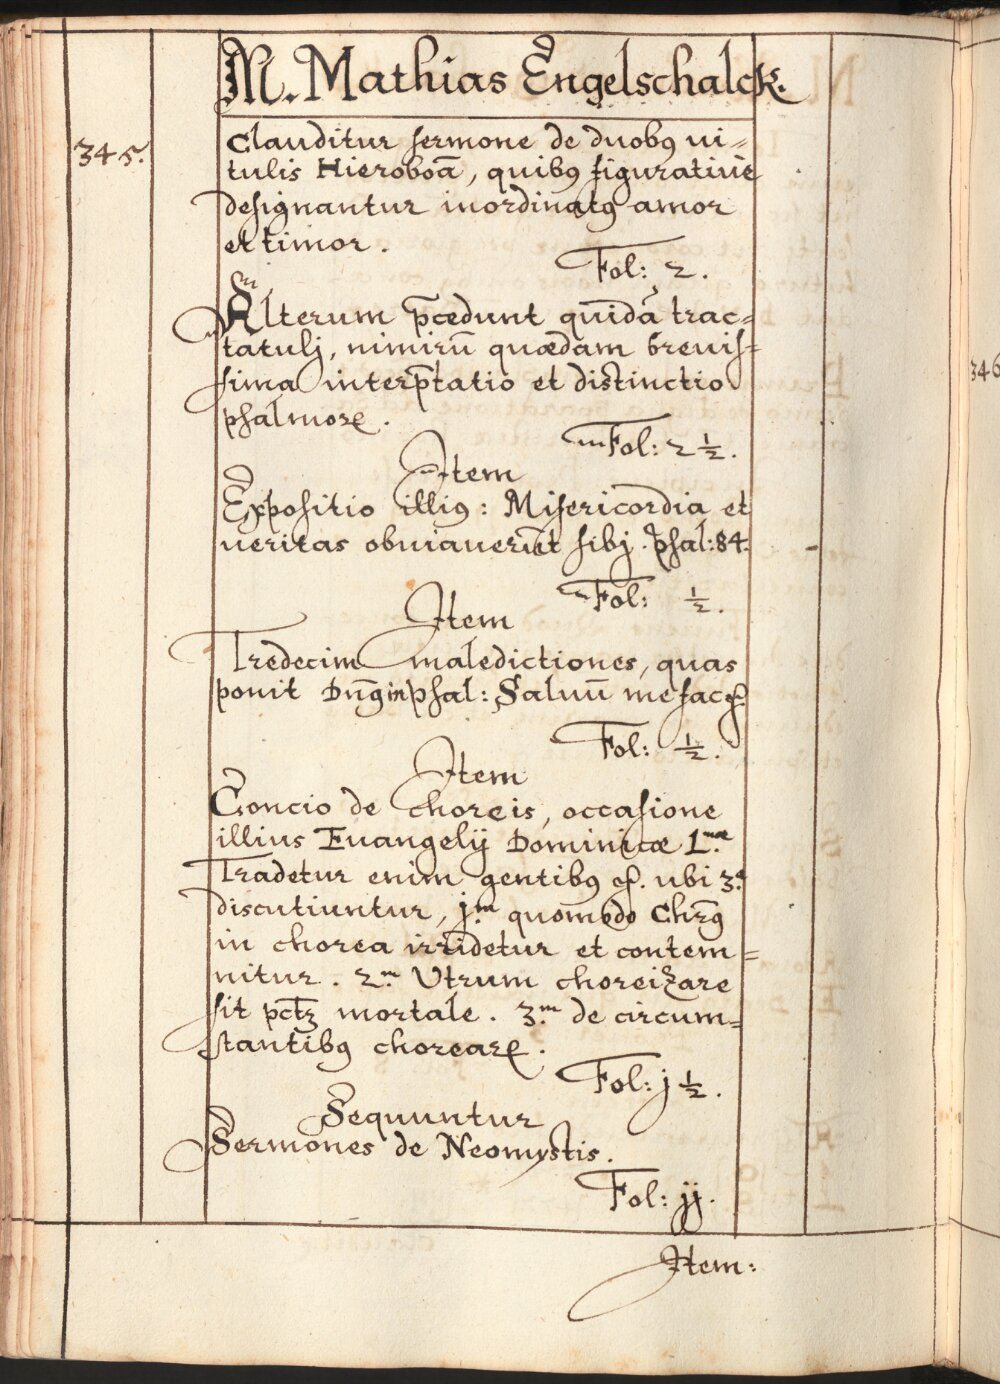 M. Mathias Engelschalck.
345.
Clauditur sermone de duobꝰ vi=
tulis Hieroboā, quibꝰ figurativè
designantur inordinatꝰ amor
et timor.
Fol: 2.
Alterum p̄cedunt quidā trac=
tatulj, nimirū quædam brevis=
sima interp̄tatio et distinctio
psalmorꝝ.
Fol: 2 ½.
Item
Expositio illiꝰ: Misericordia et
veritas obviaverūt sibj. Psal: 84.
Fol: ½.
Item
Tredecim maledictiones, quas
ponit Dn̄ꝰ in psal: Salvū me fac ꝛc.
Fol: ½.
Item
Concio de choreis, occasione
illius Evangelij Dominicæ L.mæ
Tradetur enim gentibꝰ ꝛc. ubi 3.a
discutiuntur, j.m quomodo Chr̄ꝰ
in chorea irridetur et contem=
nitur. 2.m Utrum choreizare
sit pctꝫ mortale. 3.m de circum=
stantibꝰ choreaꝝ.
Fol: j ½.
Sequuntur
Sermones de Neomystis.
Fol: jj.
Item:
346